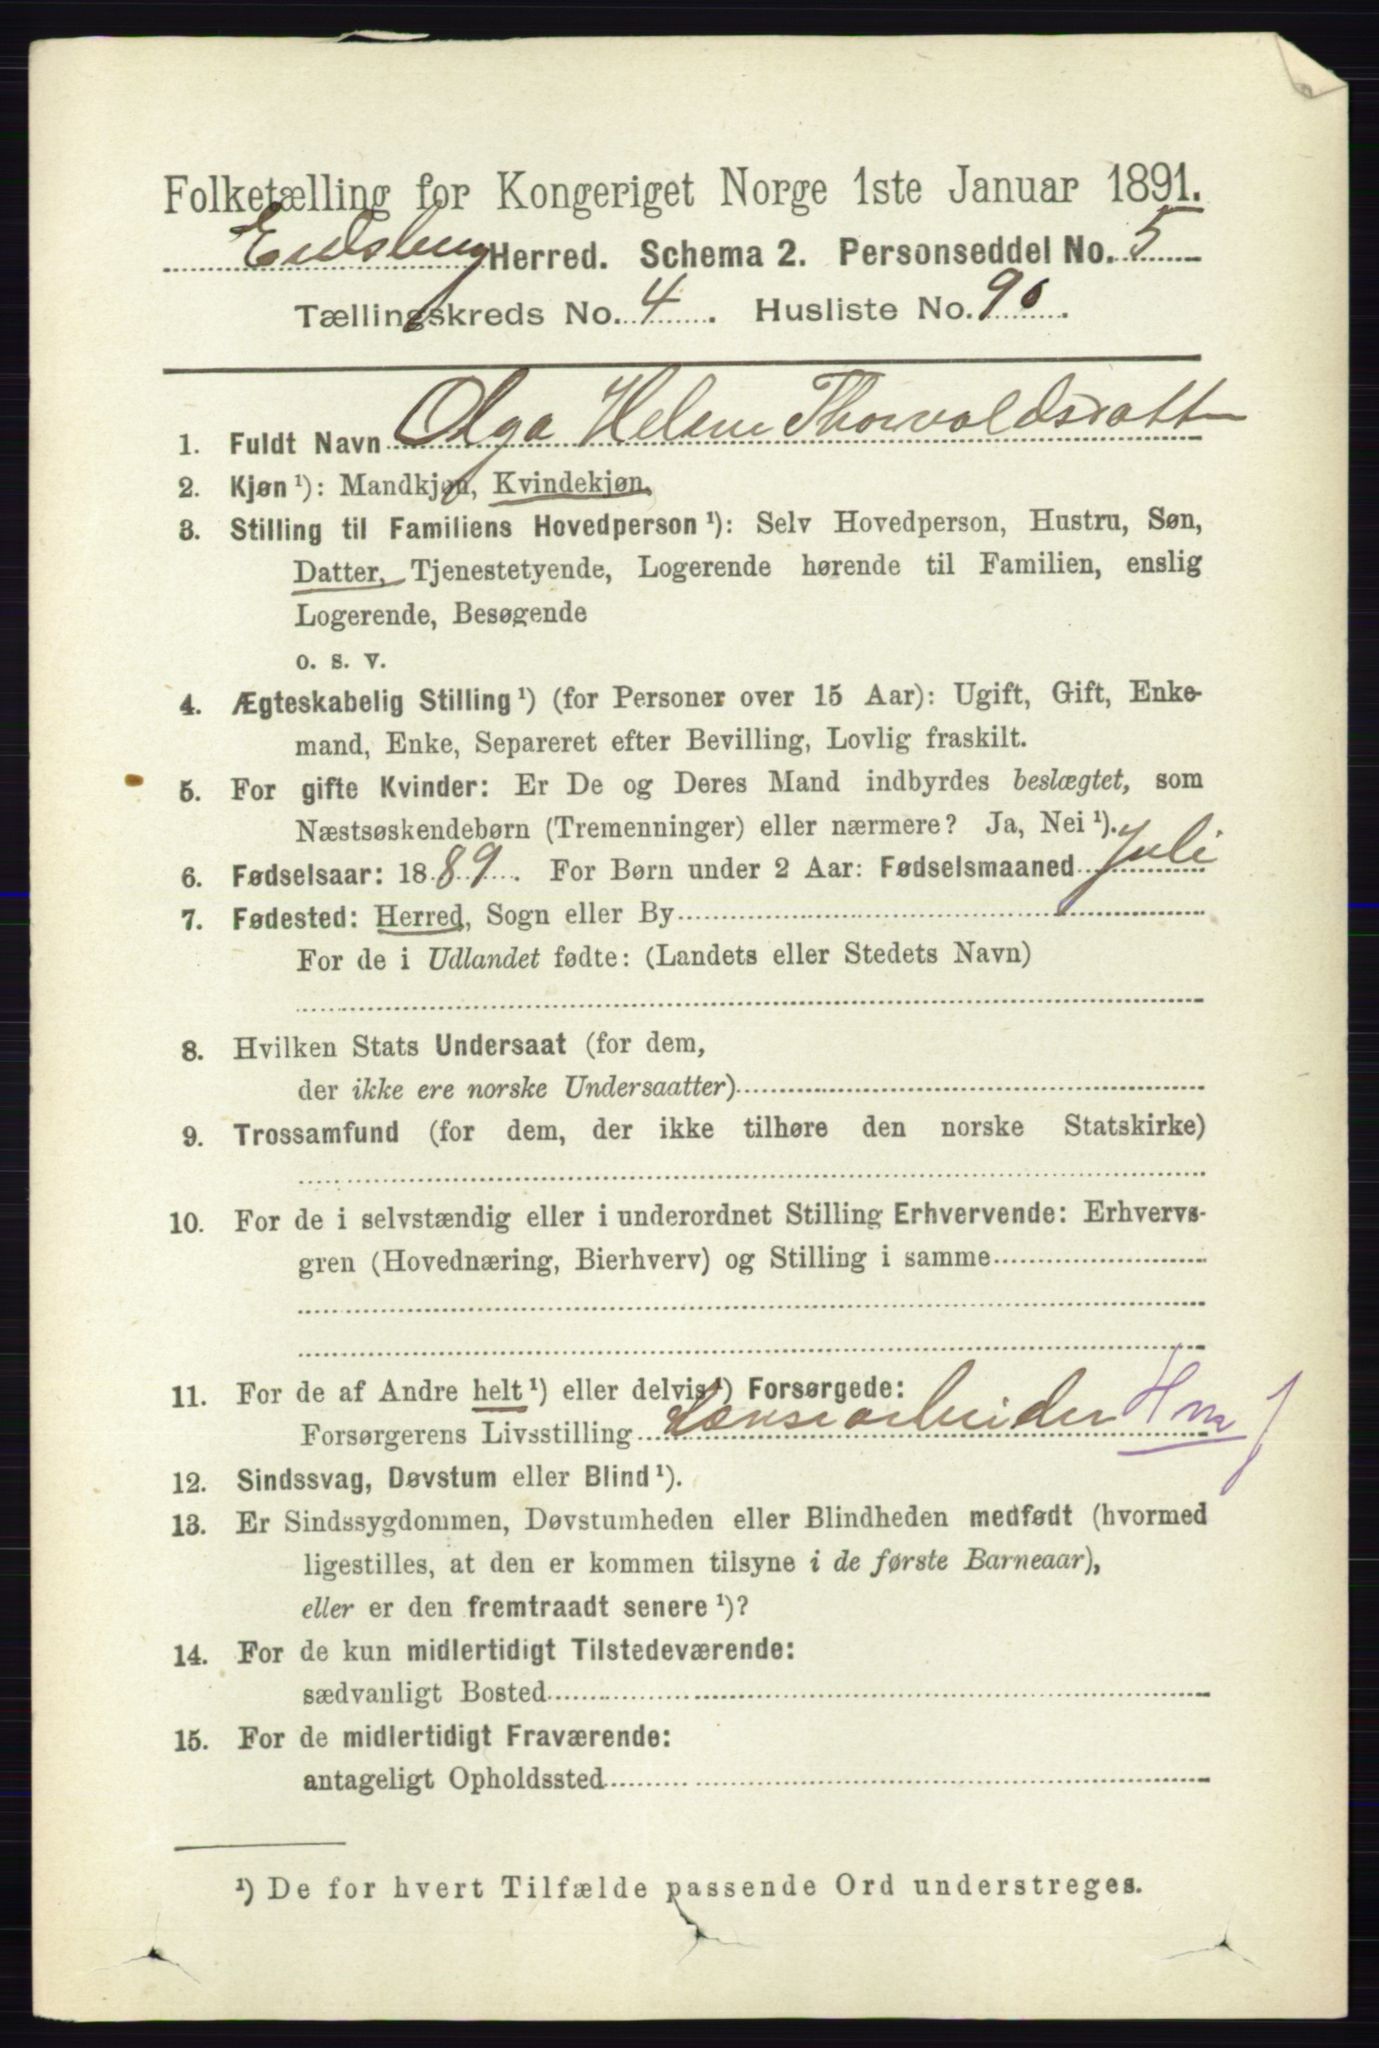 Folketælling for Kongeriget Norge 1ste Januar 1891.
Eidsberg Herred. Schema 2. Personseddel No. 5
Tællingskreds No. 4. Husliste No. 90.
1. Fuldt Navn Olga Helene Thorvaldsdatter
2. Kjøn ¹): Mandkjøn, Kvindekjøn.
3. Stilling til Familiens Hovedperson ¹): Selv Hovedperson, Hustru, Søn,
Datter, Tjenestetyende, Logerende hørende til Familien, enslig
Logerende, Besøgende
o. s. v.
4. Ægteskabelig Stilling ¹) (for Personer over 15 Aar): Ugift, Gift, Enke-
mand, Enke, Separeret efter Bevilling, Lovlig fraskilt.
5. For gifte Kvinder: Er De og Deres Mand indbyrdes beslægtet, som
Næstsøskendebørn (Tremenninger) eller nærmere? Ja, Nei ¹).
6. Fødselsaar: 1889. For Børn under 2 Aar: Fødselsmaaned Juli
7. Fødested: Herred, Sogn eller By
For de i Udlandet fødte: (Landets eller Stedets Navn)
8. Hvilken Stats Undersaat (for dem,
der ikke ere norske Undersaatter)
9. Trossamfund (for dem, der ikke tilhøre den norske Statskirke)
10. For de i selvstændig eller i underordnet Stilling Erhvervende: Erhvervs-
gren (Hovednæring, Bierhverv) og Stilling i samme
11. For de af Andre helt ¹) eller delvis ¹) Forsørgede:
Forsørgerens Livsstilling Lænsearbeider
12. Sindssvag, Døvstum eller Blind ¹).
13. Er Sindssygdommen, Døvstumheden eller Blindheden medfødt (hvormed
ligestilles, at den er kommen tilsyne i de første Barneaar),
eller er den fremtraadt senere ¹)?
14. For de kun midlertidigt Tilstedeværende:
sædvanligt Bosted
15. For de midlertidigt Fraværende:
antageligt Opholdssted
¹) De for hvert Tilfælde passende Ord understreges.